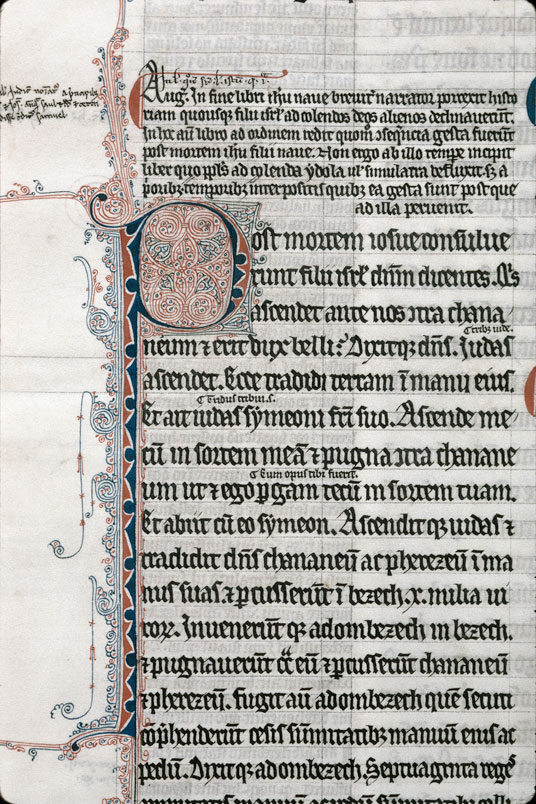 Aug. In fine libri ihu naue breuit narratur porrexit histo
riam quousque filii isrl ad colendos deos alienos declinauerunt.
In hoc aut libro ad ordinem redit quom consequencia gesta fuerunt
post mortem ihu filii naue. Non ergo ab illo tempe incipit
liber quo ppls ad colenda ydola ul' simulacra defluxit. sz a
prioribz temporibz interpositis quibz ea gesta sunt post que
ad illa peruenit.
Post mortem iosue consulue
runt filii isrl dnm dicentes. Qis
ascendet ante nos contra chana
neum ⁊ erit dux belli? Dixitqz dns. Iudas
ascendet. Ecce tradidi terram ī manu eius.
Et ait iudas symeoni fri suo. Ascende me
cū in sortem meā ⁊ pugna contra chanane
.i. cum opus tibi fuerit.
um ut ⁊ ego pgam tecū in sortem tuam.
Et abiit cū eo symeon. Ascenditqz iudas ⁊
tradidit dns chananeū ac pherezeū ī ma
nus suas. ⁊ pcusserūt ī bezech .x. milia ui
roꝝ. Inuenerūtqz adonibezech in bezech.
⁊ pugnauerūt cōtra eū ⁊ pcusserūt chananeū
⁊ pherezeū. fugit aū adonibezech quē secuti
cōphenderūt cesis sūmitatibz manuū eius ac
pedū. Dixitqz adonibezech Septuaginta reges